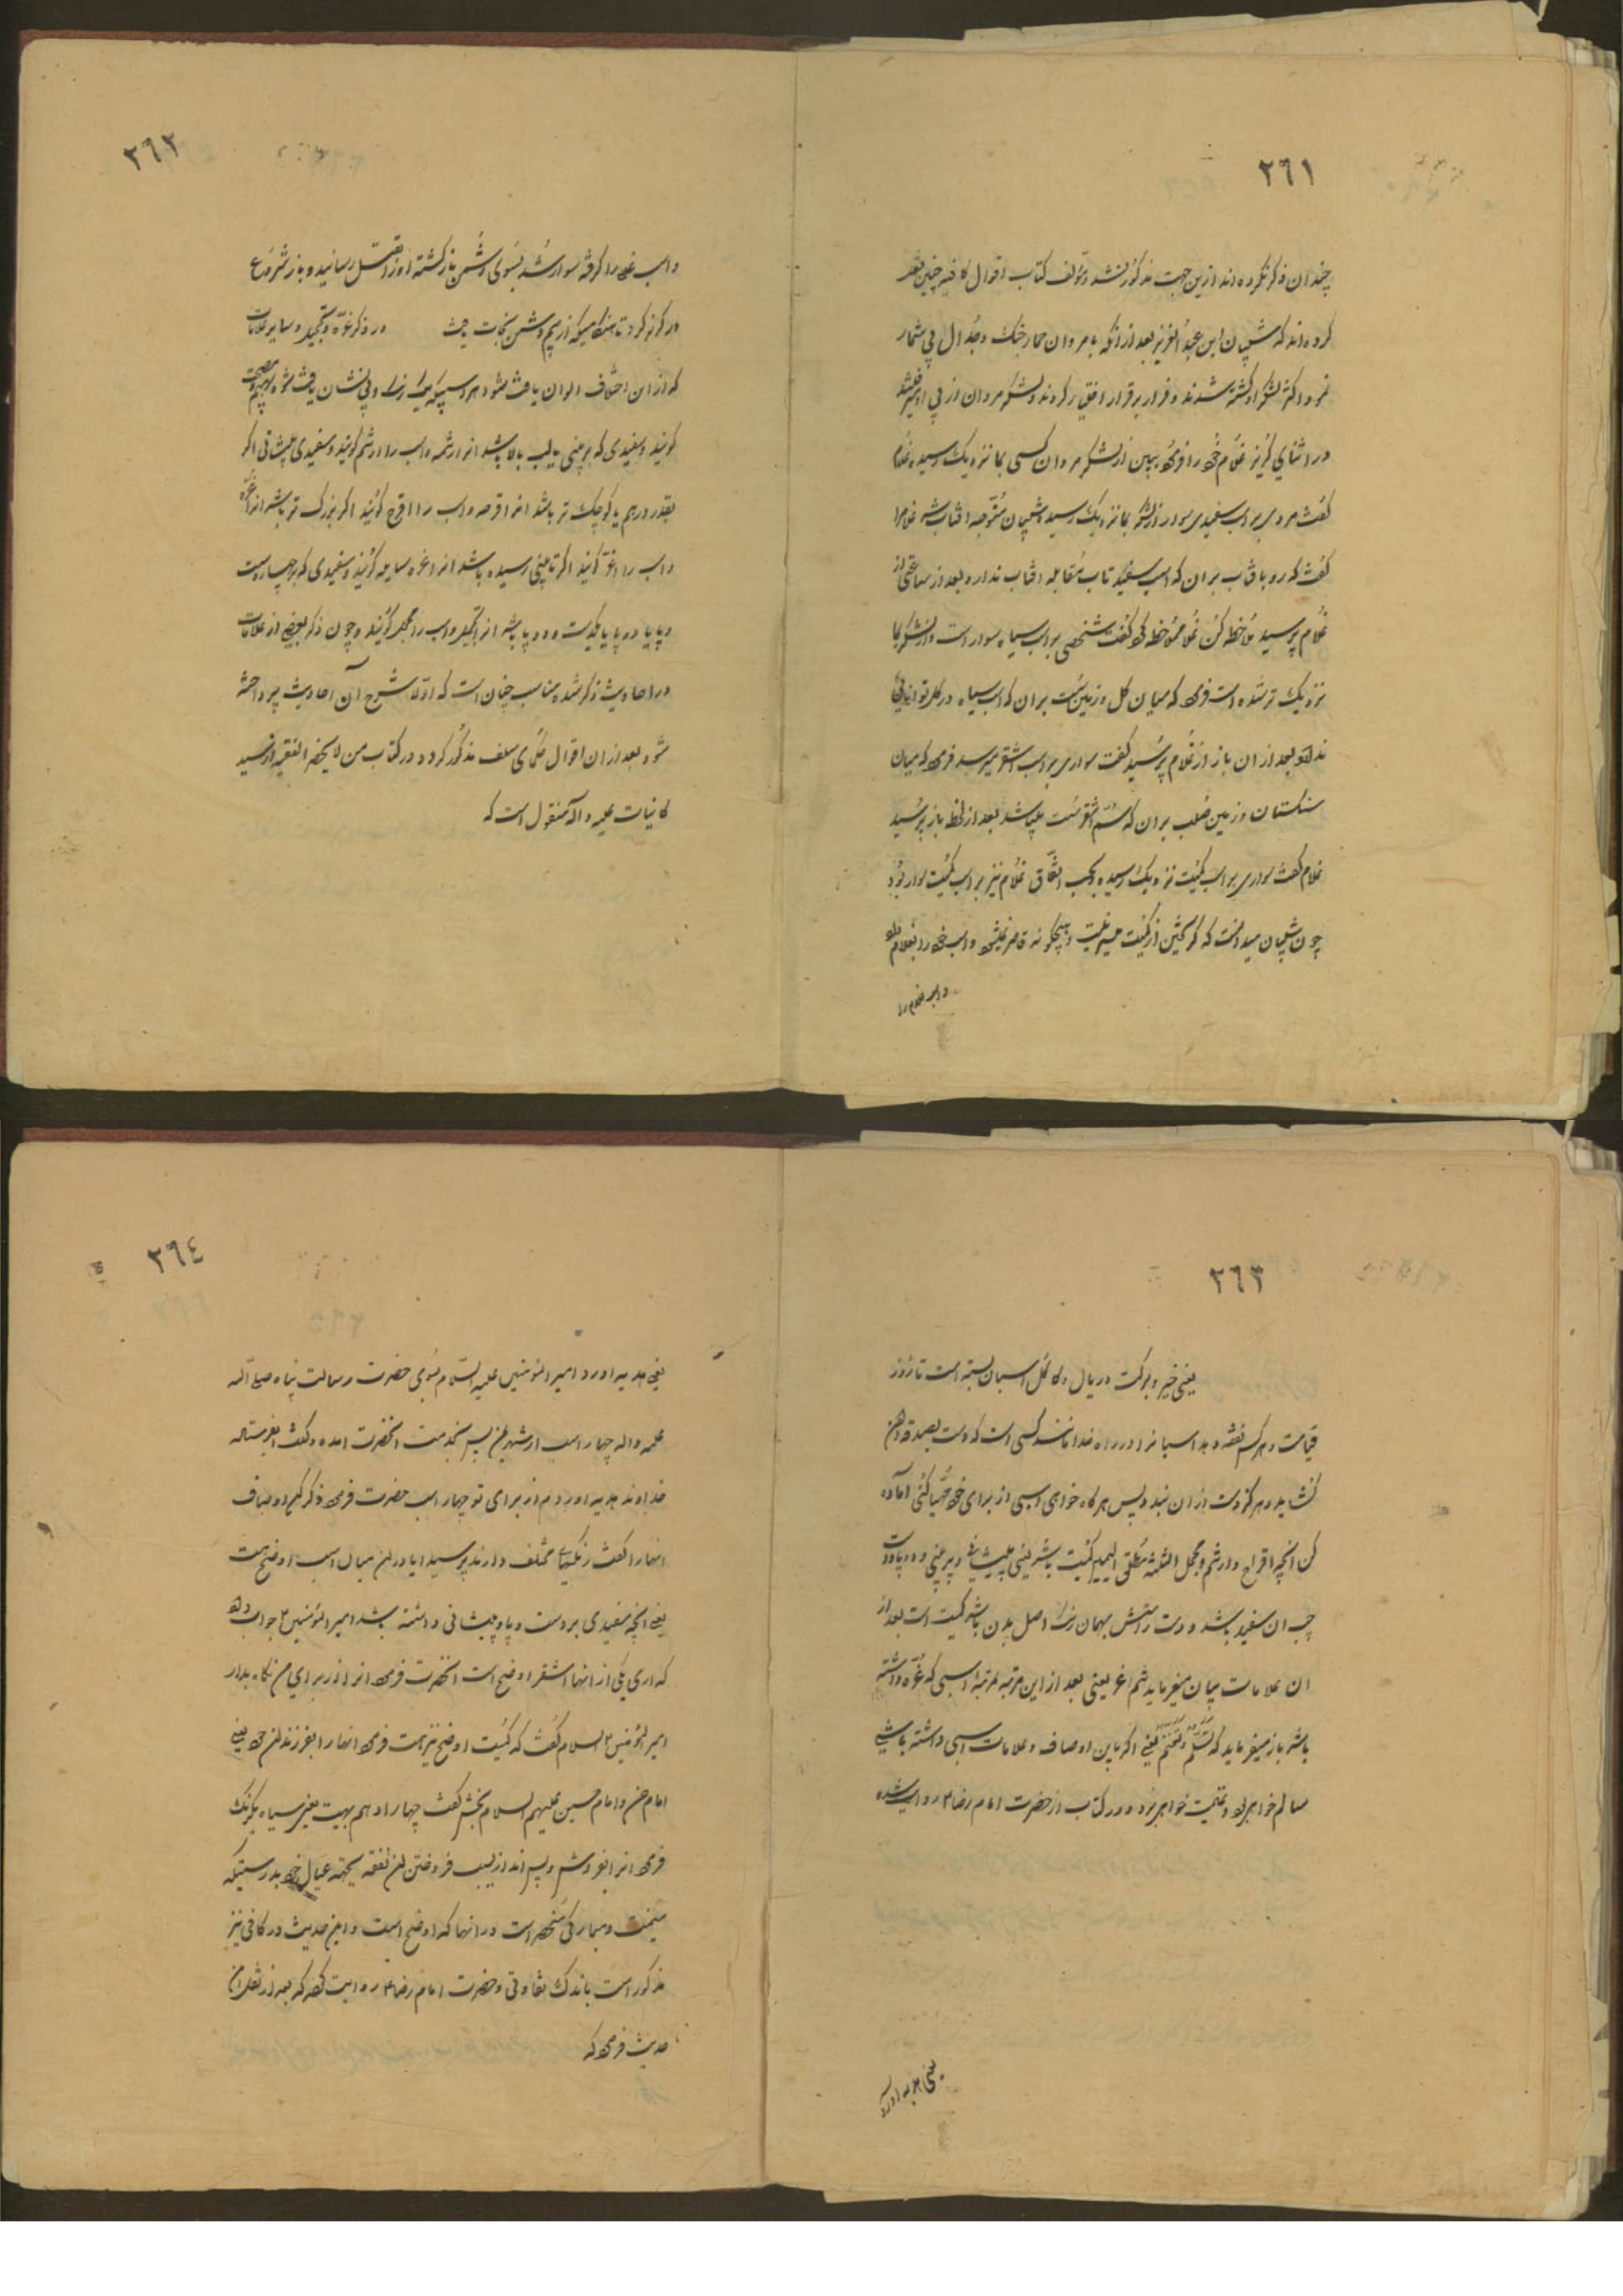 ٢٦١
چندان ذکر نکرده‌اند ازین جهت مذکور نشد و مؤلف کتاب اقوال کافیه چنین نقل
کرده‌اند که سلیمان ابن عبد العزیز بعد از آنکه با مروان حمار جنگ و جدال بی شمار
نمود اکثر لشکر او کشته شدند و فرار بر قرار اختیار کردند و لشکر مروان از پی او میرفتند
در اثنای گریز غلام خود را فرمود ببین از لشکر مروان کسی بما نزدیک رسیده غلام
گفت مردی بر اسب سفیدی سوار از لشکر بما نزدیک رسید سلیمان متوجه افتاب شد غلام را
گفت که رو بافتاب بران که اسب سفید تاب مقابله افتاب ندارد بعد از ساعتی از
غلام پرسید ملاحظه کن غلام ملاحظه کرد گفت شخصی بر اسب سیاه سوار است و از لشکر بما
نزدیک تر شده است فرمود که میان گل و زمین سست بران که اسب سیاه در گل توانائی
ندارد بعد از ان باز از غلام پرسید گفت سواری بر اسب اشقر میرسد فرمود که میان
سنگستان و زمین صلب بران که سم اشقر سست میباشد بعد از لحظه باز پرسید
غلام گفت سواری بر اسب کمیت نزدیک رسیده بحسب اتفاق غلام نیز بر اسب کمیت سوار بود
چون سلیمان میدانست که گریختن از کمیت میسر نیست و هیچگونه قاصر نمیشود اسب خود را بغلام داد
و اسب غلام را
٢٦٢
و اسب غلام را گرفته سوار شد بسوی دشمن بازگشته او را بقتل رسانید و باز شروع
در گریز کرد تا هنگامیکه از بیم دشمن نجات یافت در ذکر غره و تحجیل و سایر علامات
که از ان اختلاف الوان یافت شود هر اسبیکه یک رنگ و بی نشان یافت شود بهیم و مصمت
گویند و سفیدی که بر بینی یا لب بالا باشد انرا رثمه و اسب را ارثم گویند و سفیدی پیشانی اگر
بقدر درهم یا کوچک تر باشد انرا قرحه و اسب را اقرح گویند اگر بزرگ تر باشد انرا غره
و اسب را اغر گویند اگر تا بینی رسیده باشد انرا غره سایله گویند و سفیدی که بر چهار دست
و پا یا دو پا یا یکدست و دو پا باشد انرا تحجیل و اسب را محجل گویند و چون ذکر بعضی از علامات
در احادیث ذکر شد مناسب چنان است که اولا بشرح آن احادیث پرداخته
شود بعد از ان اقوال علمای سلف مذکور گردد در کتاب من لا یحضره الفقیه از سید
کاینات علیه و آله منقول است که
٢٦٣
یعنی خیر و برکت در یال و کاکل اسبان بسته است تا روز
قیامت و هر کس نفقه دهد اسبانرا در راه خدا مانند کسی است که دست بصدقه دادن
گشاید و هرگز دست از ان نبندد پس هر گاه خواهی اسبی از برای خود مهیا کنی آماده
کن آنچه اقرح و ارثم و محجل الثلثه مطلق الیمین کمیت باشد یعنی پیشانی و بینی و دو پا و دست
چپ ان سفید باشد و دست راستش بهمان رنگ اصل بدن باشد کمیت است بعد از
ان علامات بیان میفرماید ثم اغر یعنی بعد از این مرتبه مرتبهٔ اسبی که غره داشته
باشد باز میفرماید که تسلم و تغنم یعنی اگر باین اوصاف و علامات اسبی داشته باشی
سالم خواهی بود و غنیمت خواهی برد و در کتاب از حضرت امام رضا ع روایت شده
یعنی هدیه آورد
٢٦٤
یعنی هدیه اورد امیر المؤمنین علیه السلام بسوی حضرت رسالت پناه صلی الله
علیه و اله چهار اسب از شهر یمن پس بخدمت انحضرت امده و گفت ای فرستاده
خداوند هدیه اوردم از برای تو چهار اسب حضرت فرمود ذکر کن اوصاف
انهارا گفت رنگهای مختلف دارند پرسید ایا در این میان اسب اوضح هست
یعنی انچه سفیدی بر دست و پا و پیشانی داشته باشد امیر المؤمنین ع جواب داد
که اری یکی از انها اشقر اوضح است انحضرت فرمود انرا از برای من نگاه بدار
امیر المؤمنین ع السلام گفت که کمیت اوضح نیز هست فرمود انهارا بفرزندان خود یعنی
امام حسن و امام حسین علیهم السلام بخش گفت چهارم ادهم بهیم است یعنی سیاه یکرنگ
فرمود انرا بفروش و پس انداز بسبب فروختن ان نفقه بجهة عیال خود بدرستیکه
میمنت و مبارکی منحصر است در انها که اوضح است و این حدیث در کافی نیز
مذکور است باندک تفاوتی و حضرت امام رضا ع روایت کرده که بعد از نقل ان
حدیث فرمود که